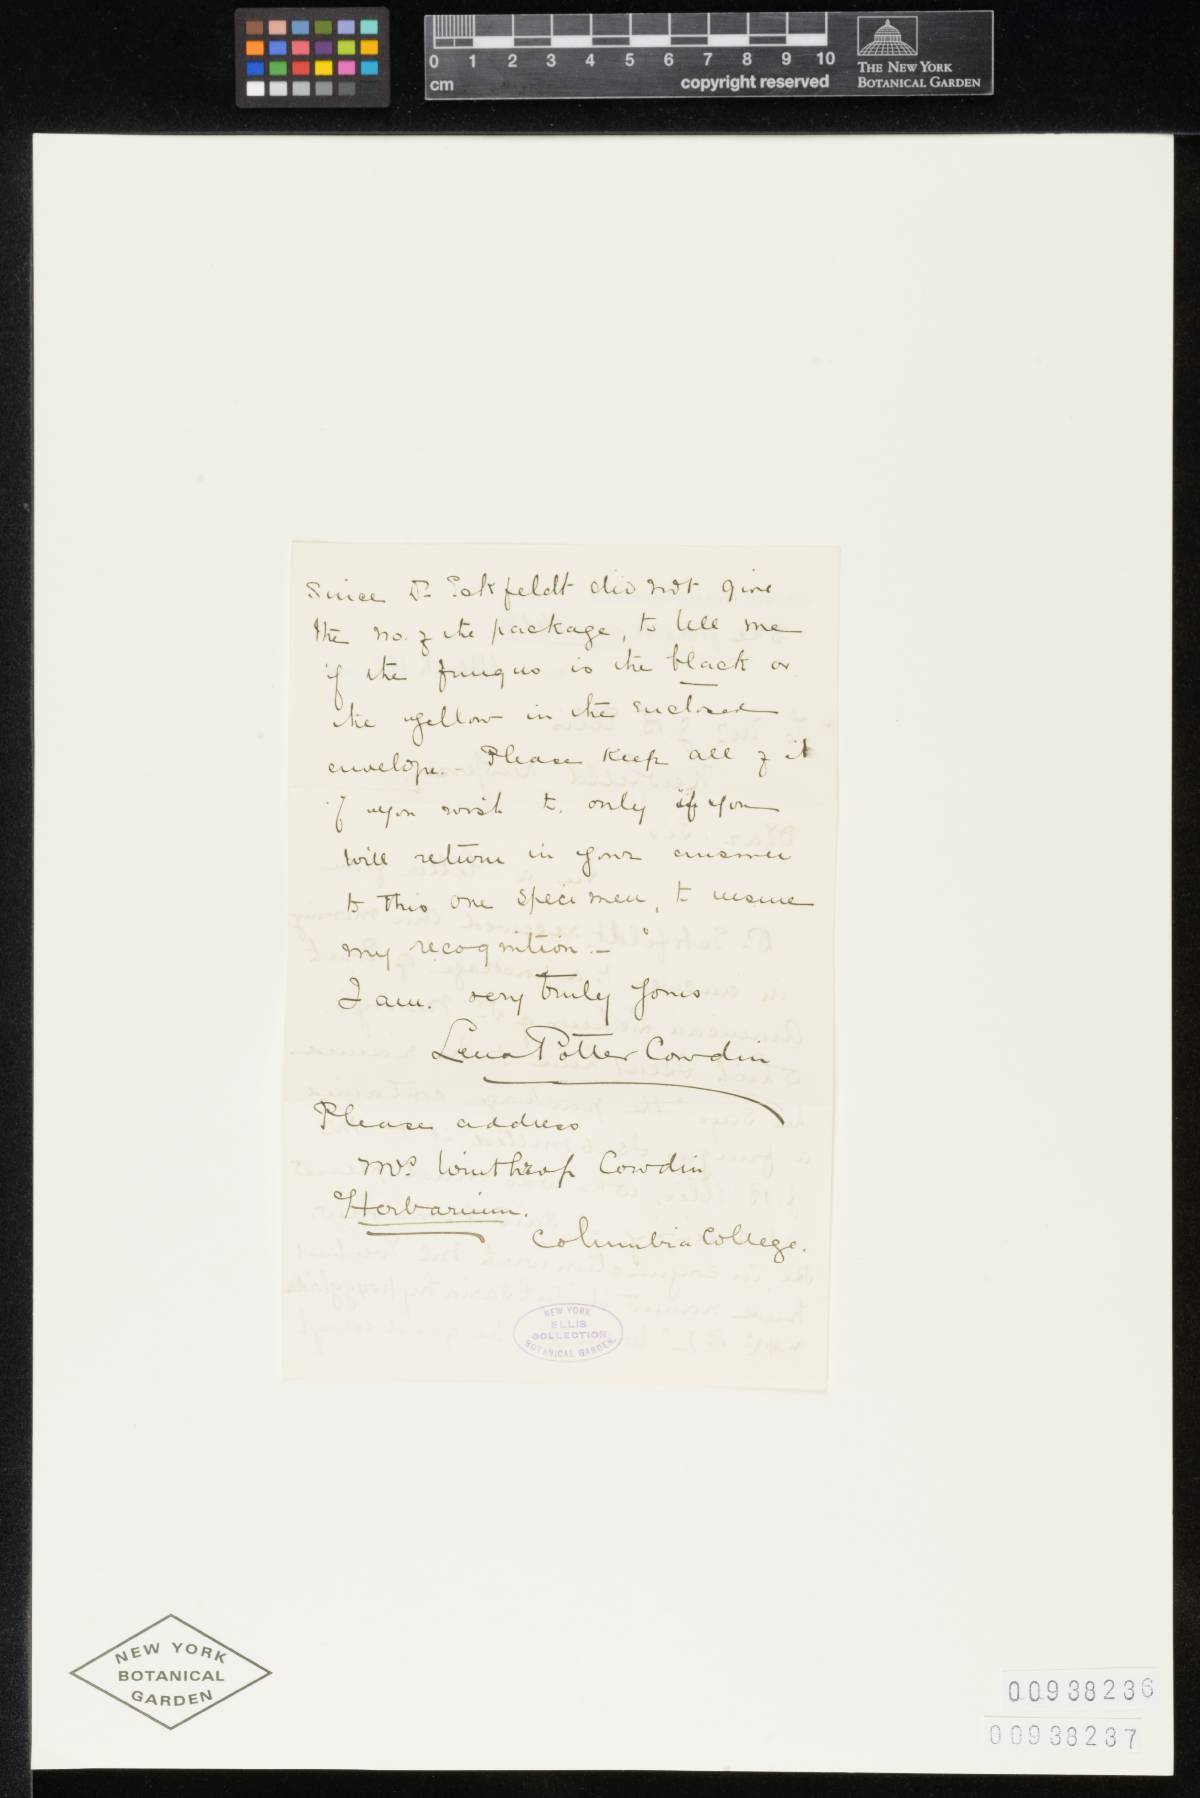 0 1 2 3 4 5 6 7 8 9 10
cm
copyright reserved
THE NEW YORK
BOTANICAL GARDEN
Since Dr Eckfeldt did not give
the no. of the package, to tell me
if the fungus is the black or
the yellow in the enclosed
envelope. - Please keep all of it
if you wish to, only if you
will return in your answer
to this one specimen, to insure
my recognition. -
I am. very truly yours
Lena Potter Cowdin
Please address
Mrs. Winthrop Cowdin
Herbarium.
Columbia College.
NEW YORK
ELLIS
COLLECTION
BOTANICAL GARDEN
NEW YORK
BOTANICAL
GARDEN
00938236
00938237